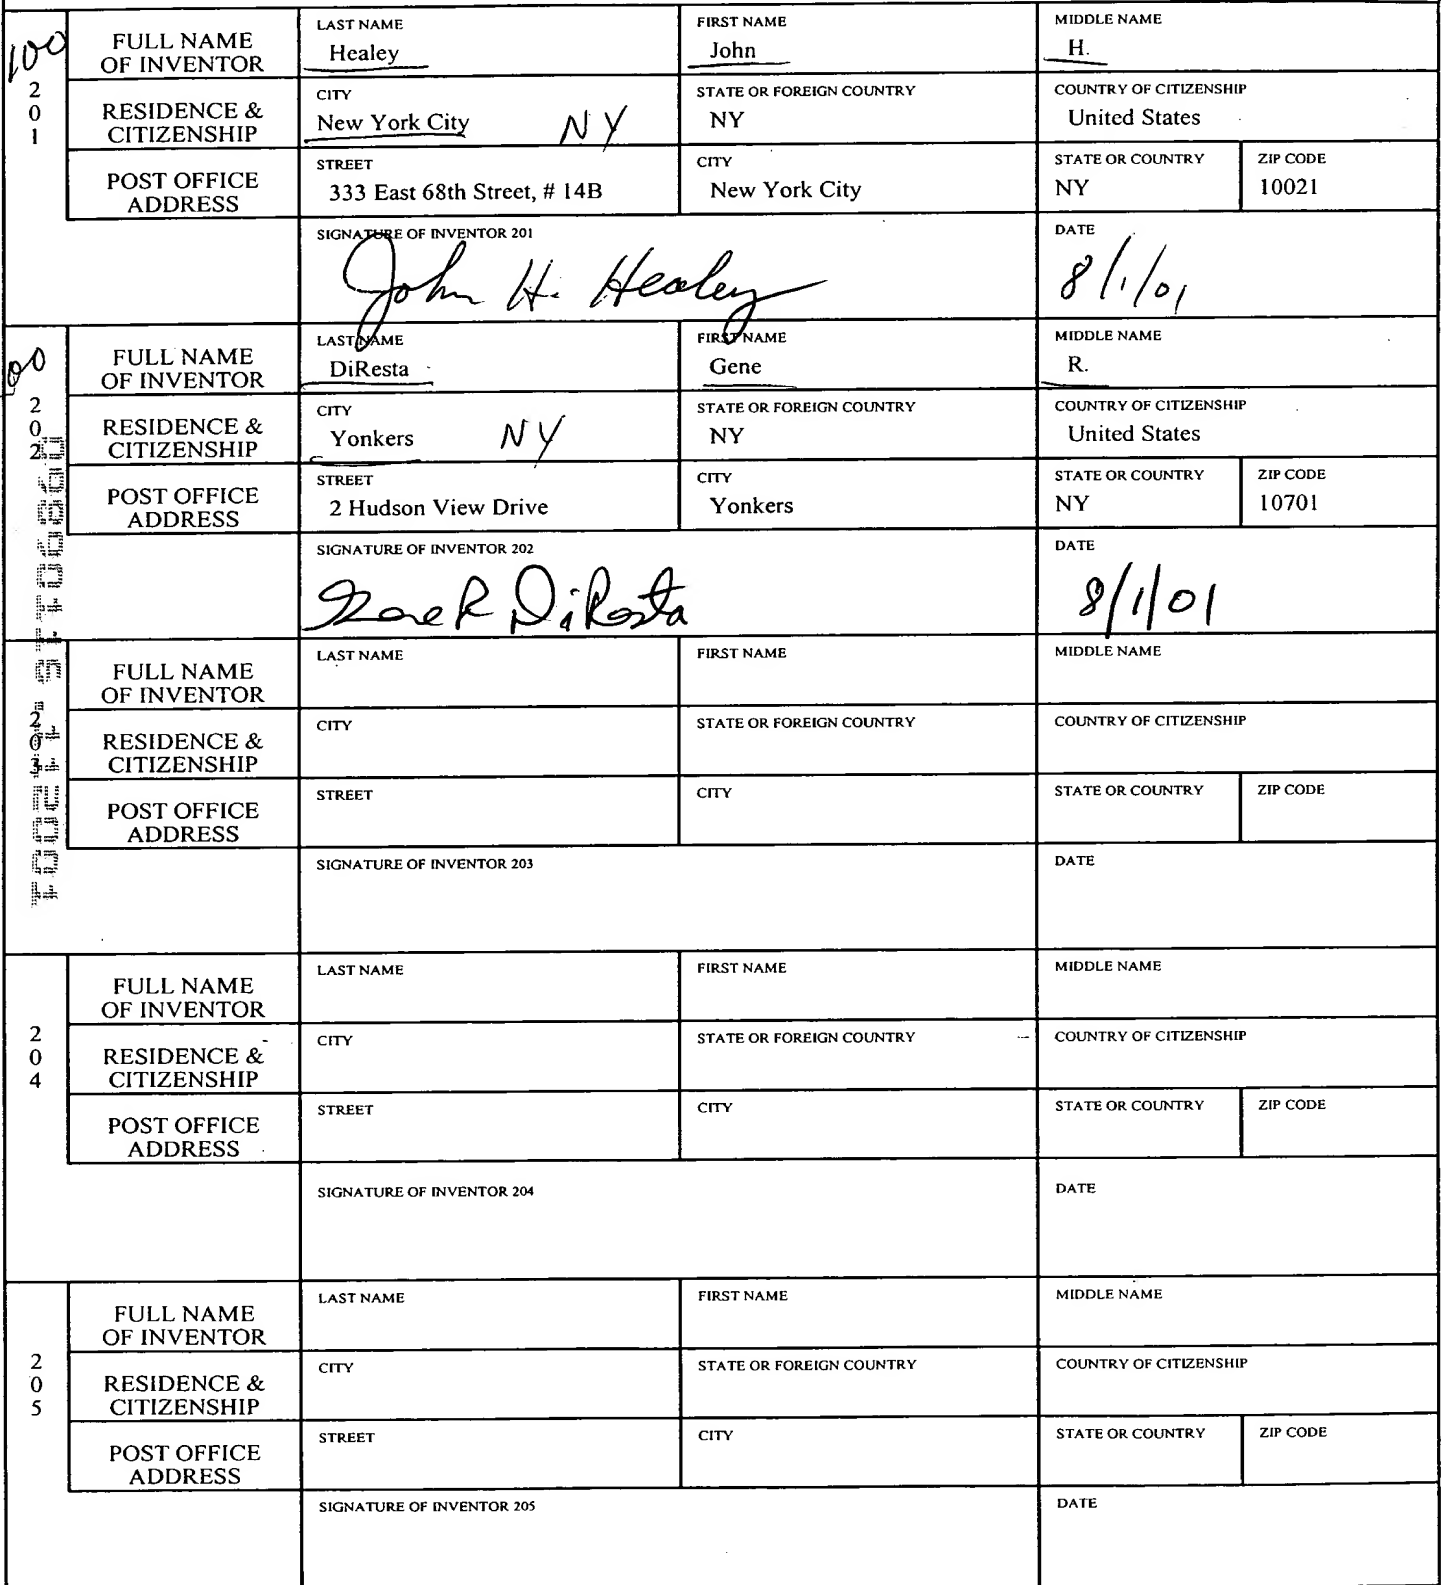 100
201
FULL NAME OF INVENTOR
LAST NAME Healey
FIRST NAME John
MIDDLE NAME H.
RESIDENCE & CITIZENSHIP
CITY New York City NY
STATE OR FOREIGN COUNTRY NY
COUNTRY OF CITIZENSHIP United States
POST OFFICE ADDRESS
STREET 333 East 68th Street, # 14B
CITY New York City
STATE OR COUNTRY NY
ZIP CODE 10021
SIGNATURE OF INVENTOR 201 John H. Healey
DATE 8/1/01
202
FULL NAME OF INVENTOR
LAST NAME DiResta
FIRST NAME Gene
MIDDLE NAME R.
RESIDENCE & CITIZENSHIP
CITY Yonkers NY
STATE OR FOREIGN COUNTRY NY
COUNTRY OF CITIZENSHIP United States
POST OFFICE ADDRESS
STREET 2 Hudson View Drive
CITY Yonkers
STATE OR COUNTRY NY
ZIP CODE 10701
SIGNATURE OF INVENTOR 202 Gene R DiResta
DATE 8/1/01
203
FULL NAME OF INVENTOR
LAST NAME
FIRST NAME
MIDDLE NAME
RESIDENCE & CITIZENSHIP
CITY
STATE OR FOREIGN COUNTRY
COUNTRY OF CITIZENSHIP
POST OFFICE ADDRESS
STREET
CITY
STATE OR COUNTRY
ZIP CODE
SIGNATURE OF INVENTOR 203
DATE
204
FULL NAME OF INVENTOR
LAST NAME
FIRST NAME
MIDDLE NAME
RESIDENCE & CITIZENSHIP
CITY
STATE OR FOREIGN COUNTRY
COUNTRY OF CITIZENSHIP
POST OFFICE ADDRESS
STREET
CITY
STATE OR COUNTRY
ZIP CODE
SIGNATURE OF INVENTOR 204
DATE
205
FULL NAME OF INVENTOR
LAST NAME
FIRST NAME
MIDDLE NAME
RESIDENCE & CITIZENSHIP
CITY
STATE OR FOREIGN COUNTRY
COUNTRY OF CITIZENSHIP
POST OFFICE ADDRESS
STREET
CITY
STATE OR COUNTRY
ZIP CODE
SIGNATURE OF INVENTOR 205
DATE